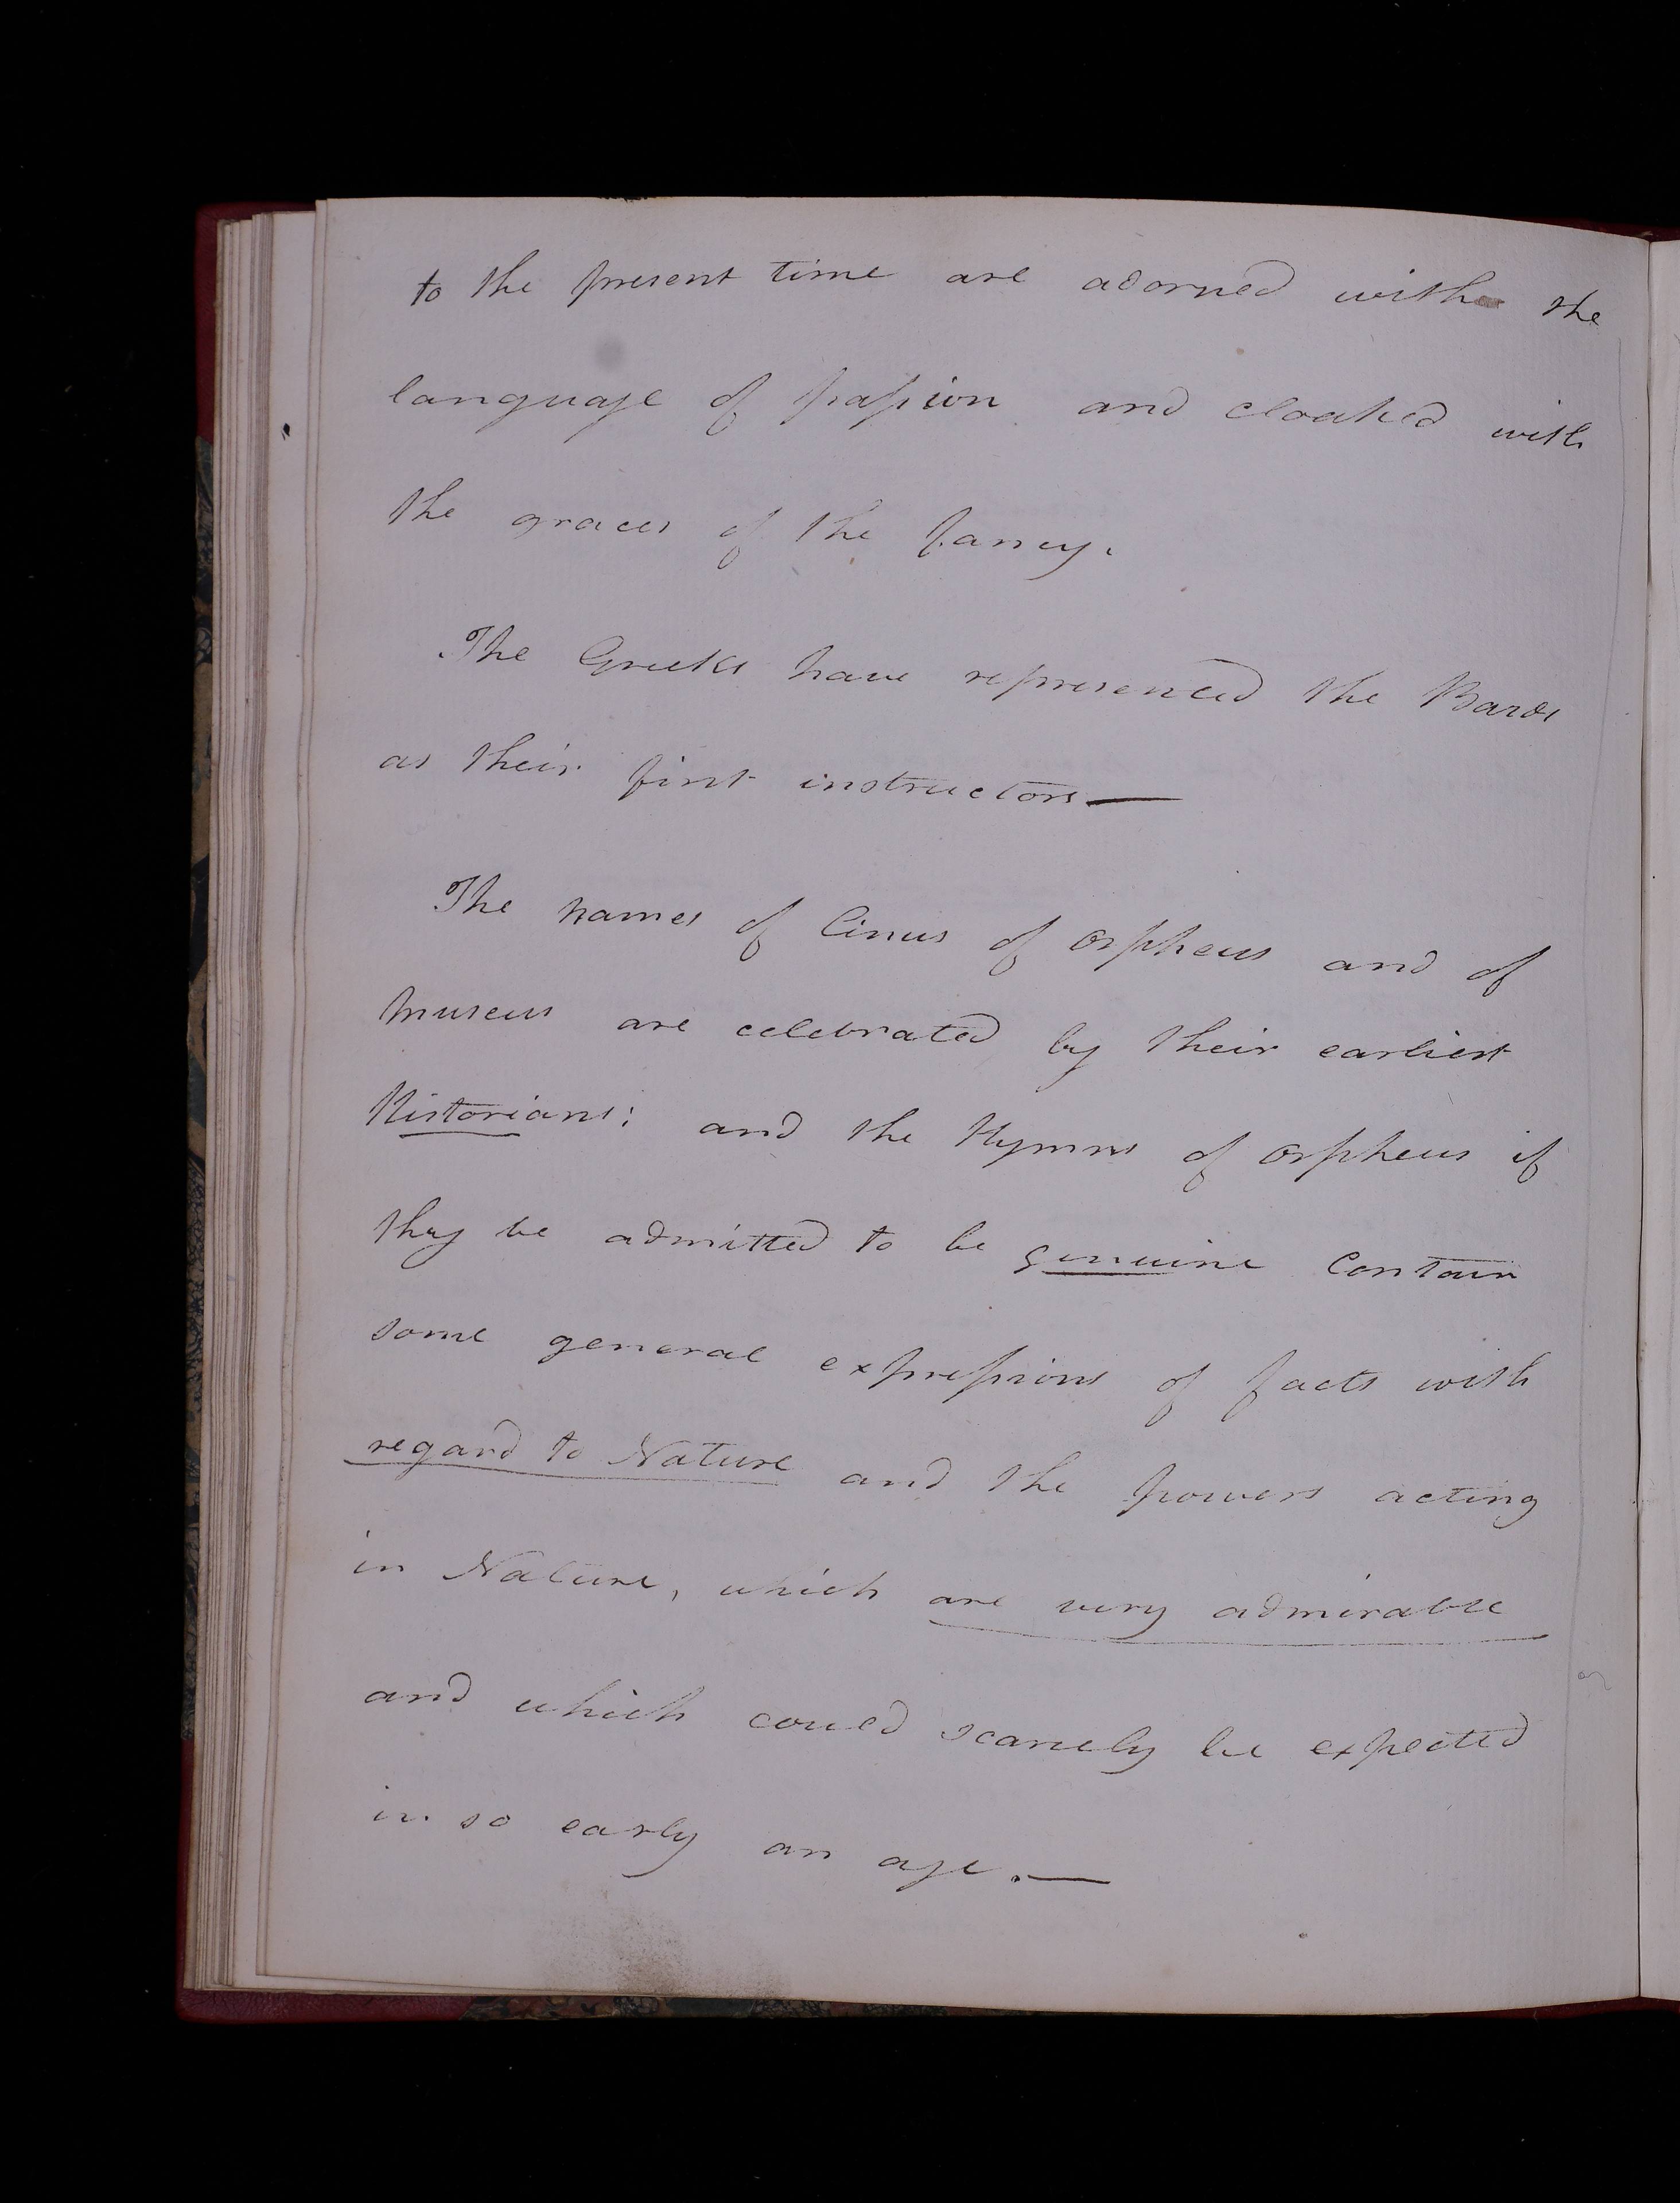 to the present time are adorned with the
language of passion and cloathed with
the graces of the fancy.
The Greeks have represented the Bards
as their first instructors —
The names of Linus of Orpheus and of
Museus are celebrated by their earliest
Historians: and the Hymns of Orpheus if
they be admitted to be genuine contain
some general expressions of facts with
regard to Nature and the powers acting
in Nature, which are very admirable
and which could scarcely be expected
in so early an age. —